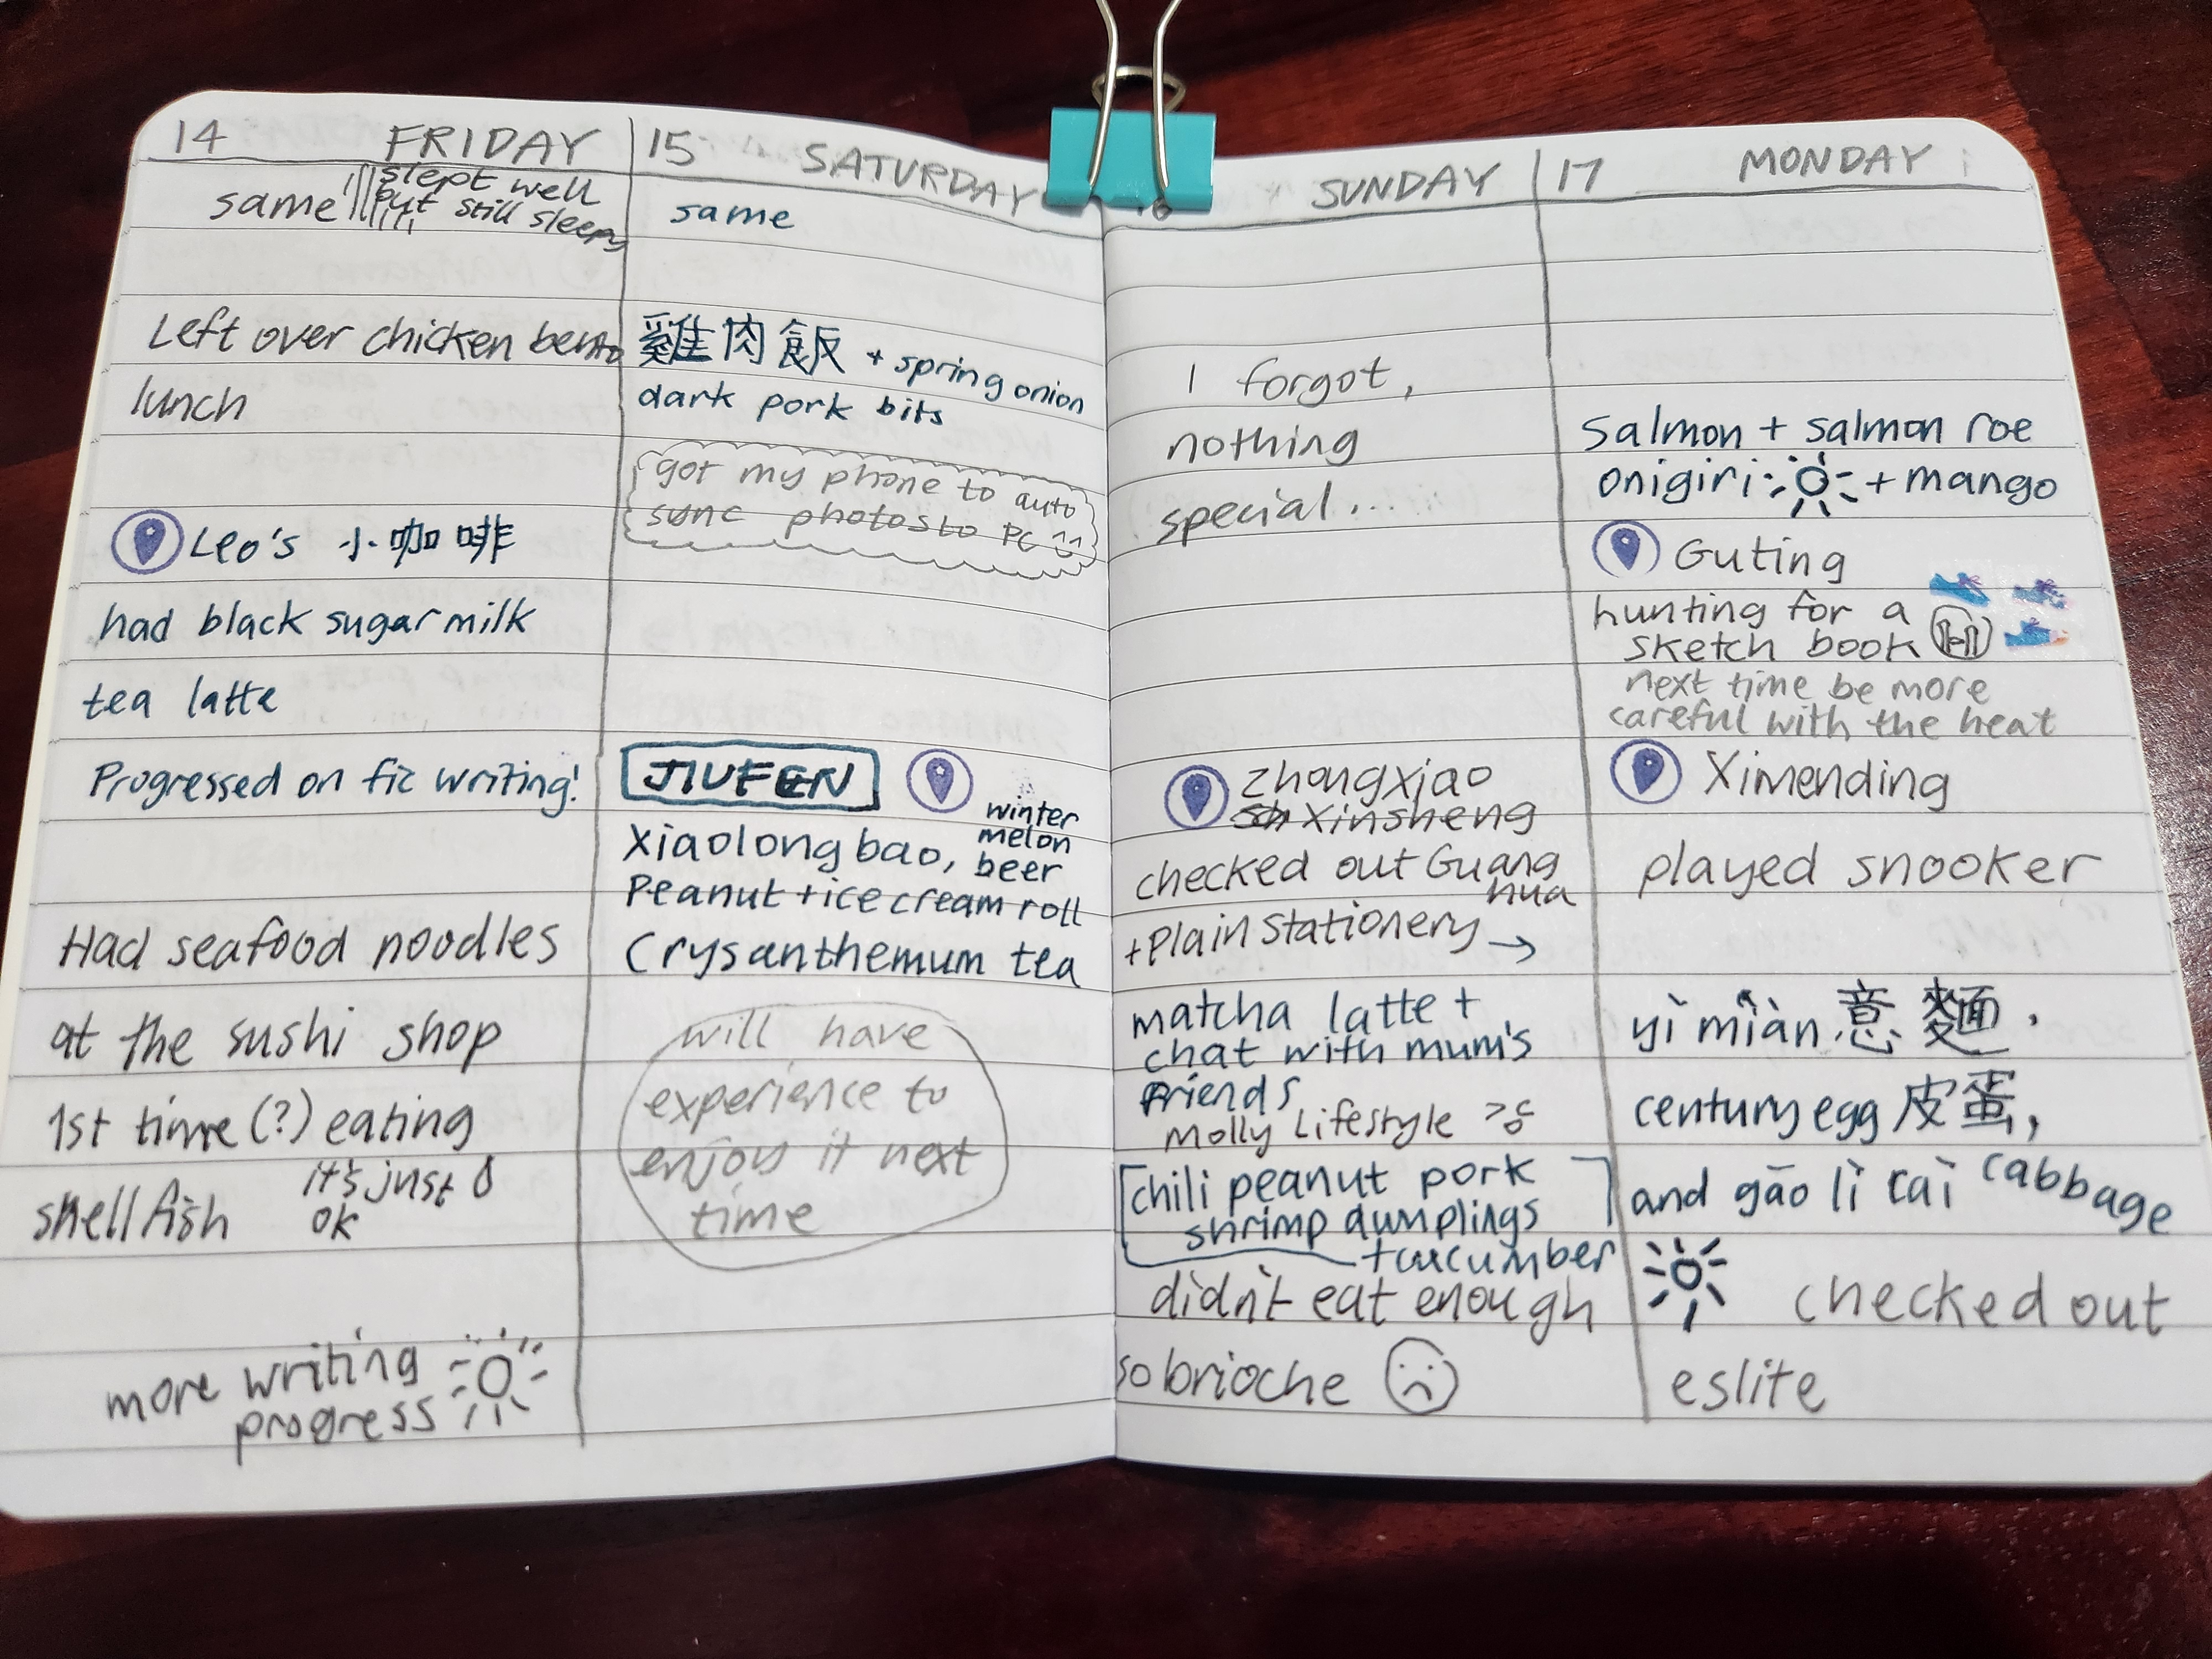 14 FRIDAY
same slept well
but still sleepy
Left over chicken bento
lunch
Leo's 小咖啡
had black sugar milk
tea latte
Progressed on fic writing!
Had seafood noodles
at the sushi shop
1st time (?) eating
shellfish it's just
ok
more writing
progress
15 SATURDAY
same
雞肉飯 + spring onion
dark pork bits
got my phone to auto
sync photos to PC
JIUFEN
winter
melon
Xiaolongbao, beer
Peanut + ice cream roll
Crysanthemum tea
will have
experience to
enjoy it next
time
16 SUNDAY
I forgot,
nothing
special...
Zhongxiao
Xinsheng
checked out Guang
hua
+ Plain stationery →
matcha latte +
chat with mum's
friends
Molly Lifestyle
chili peanut pork
shrimp dumplings
+ cucumber
didn't eat enough
so brioche
17 MONDAY
Salmon + salmon roe
onigiri + mango
Guting
hunting for a
sketch book
next time be more
careful with the heat
Ximending
played snooker
yì mìàn 意麵.
century egg 皮蛋,
and gāo lì caì cabbage
checked out
eslite